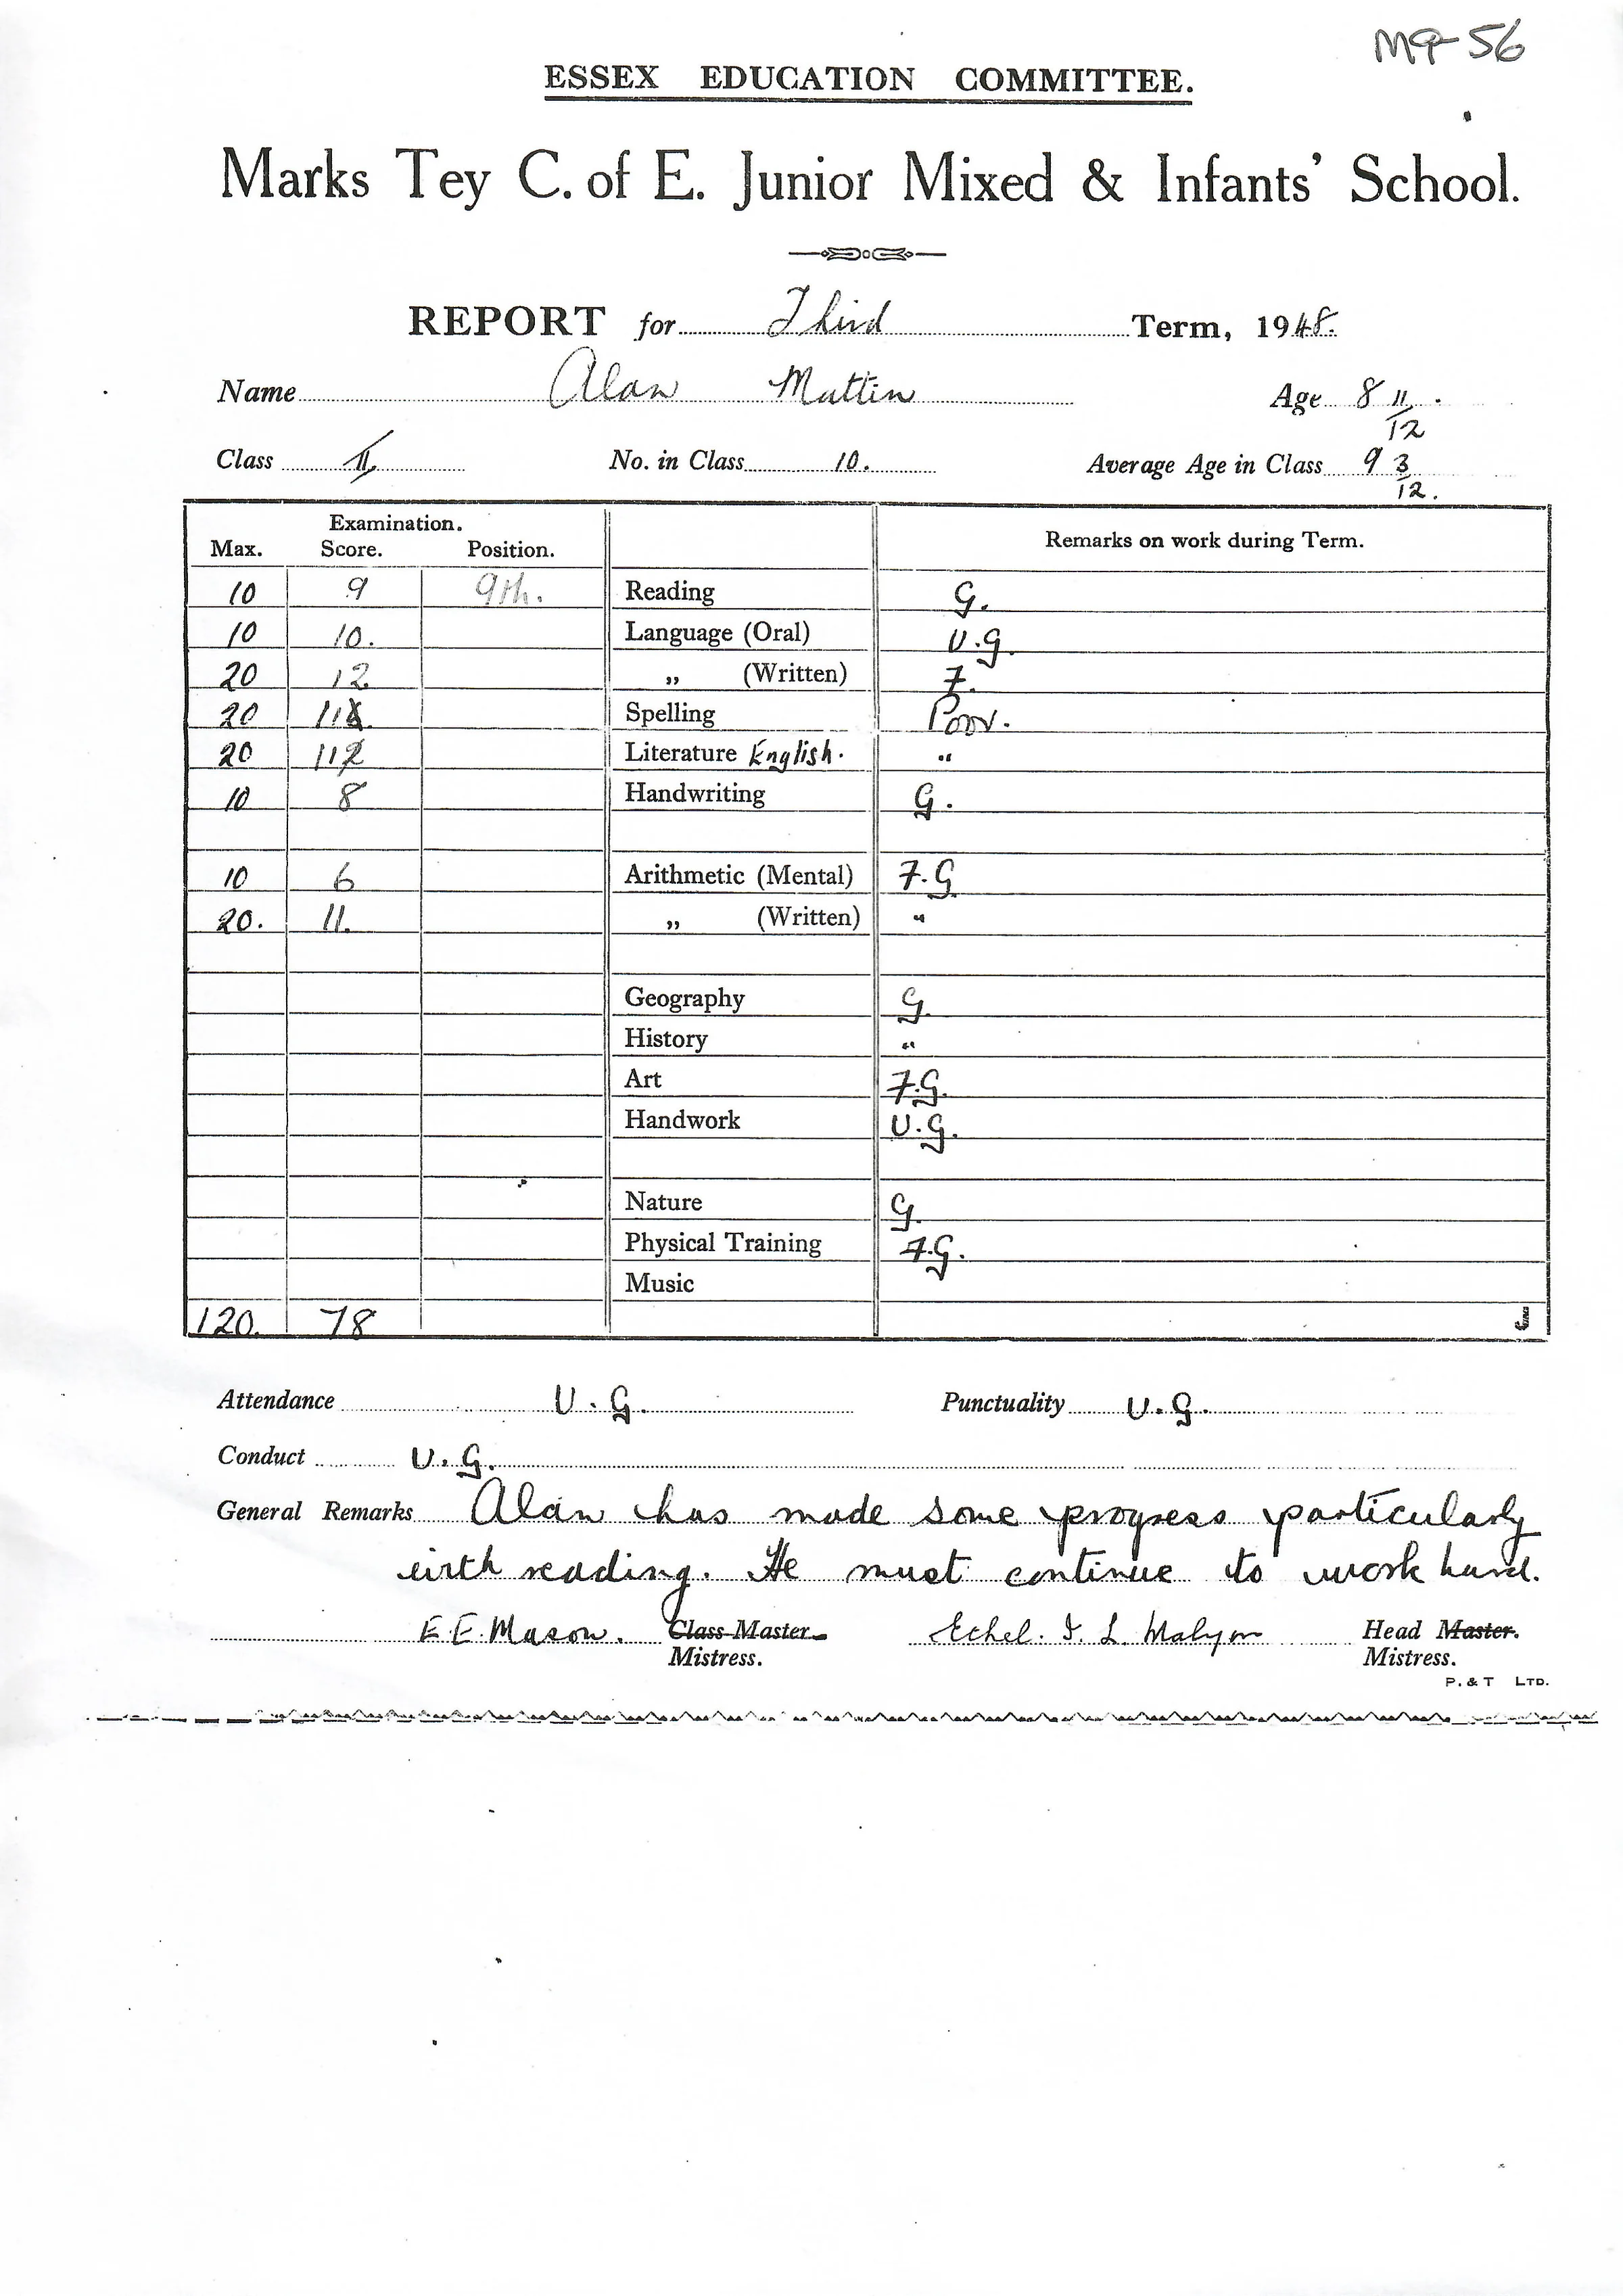 M9-56
ESSEX EDUCATION COMMITTEE.
Marks Tey C. of E. Junior Mixed & Infants' School.
REPORT for Third Term, 1948.
Name Alan Mattin Age 8 11/12.
Class II No. in Class 10. Average Age in Class 9 3/12.
Examination.
Max. Score. Position. Remarks on work during Term.
10 9 9th. Reading G.
10 10. Language (Oral) V.G.
20 12 „ (Written) F.
20 11 Spelling Poor.
20 11 Literature English. "
10 8 Handwriting G.
10 6 Arithmetic (Mental) F.G
20. 11. „ (Written) "
Geography G.
History "
Art F.G.
Handwork V.G.
Nature G.
Physical Training F.G.
Music
120. 78 J
Attendance V.G. Punctuality V.G.
Conduct V.G.
General Remarks Alan has made some progress particularly
with reading. He must continue to work hard.
E.E. Mason. Class Master Ethel. I. L. Malyon Head Master.
Mistress. Mistress.
P. & T LTD.